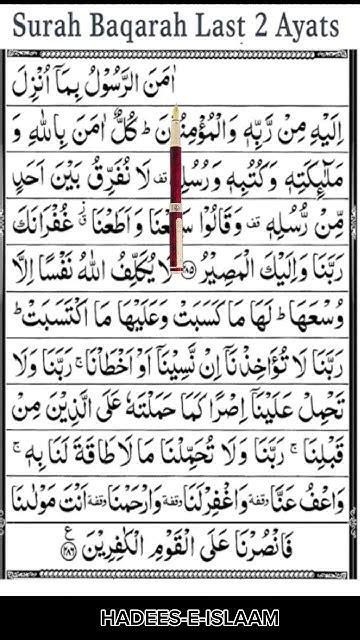 Surah Baqarah Last 2 Ayats
اٰمَنَ الرَّسُوْلُ بِمَاۤ اُنْزِلَ
اِلَيْهِ مِنْ رَّبِّهٖ وَالْمُؤْمِنُوْنَ ؕ كُلٌّ اٰمَنَ بِاللّٰهِ وَ
مَلٰٓئِكَتِهٖ وَكُتُبِهٖ وَرُسُلِهٖ قف لَا نُفَرِّقُ بَيْنَ اَحَدٍ
مِّنْ رُّسُلِهٖ قف وَقَالُوْا سَمِعْنَا وَاَطَعْنَا غُفْرَانَكَ
رَبَّنَا وَاِلَيْكَ الْمَصِيْرُ ﴿۲۸۵﴾ لَا يُكَلِّفُ اللّٰهُ نَفْسًا اِلَّا
وُسْعَهَا ؕ لَهَا مَا كَسَبَتْ وَعَلَيْهَا مَا اكْتَسَبَتْ ؕ
رَبَّنَا لَا تُؤَاخِذْنَاۤ اِنْ نَّسِيْنَاۤ اَوْ اَخْطَاْنَا ۚ رَبَّنَا وَلَا
تَحْمِلْ عَلَيْنَاۤ اِصْرًا كَمَا حَمَلْتَهٗ عَلَى الَّذِيْنَ مِنْ
قَبْلِنَا ۚ رَبَّنَا وَلَا تُحَمِّلْنَا مَا لَا طَاقَةَ لَنَا بِهٖ ۚ
وَاعْفُ عَنَّا وقفة وَاغْفِرْ لَنَا وقفة وَارْحَمْنَا وقفة اَنْتَ مَوْلٰىنَا
فَانْصُرْنَا عَلَى الْقَوْمِ الْكٰفِرِيْنَ ﴿۲۸۶﴾ ع
HADEES-E-ISLAAM